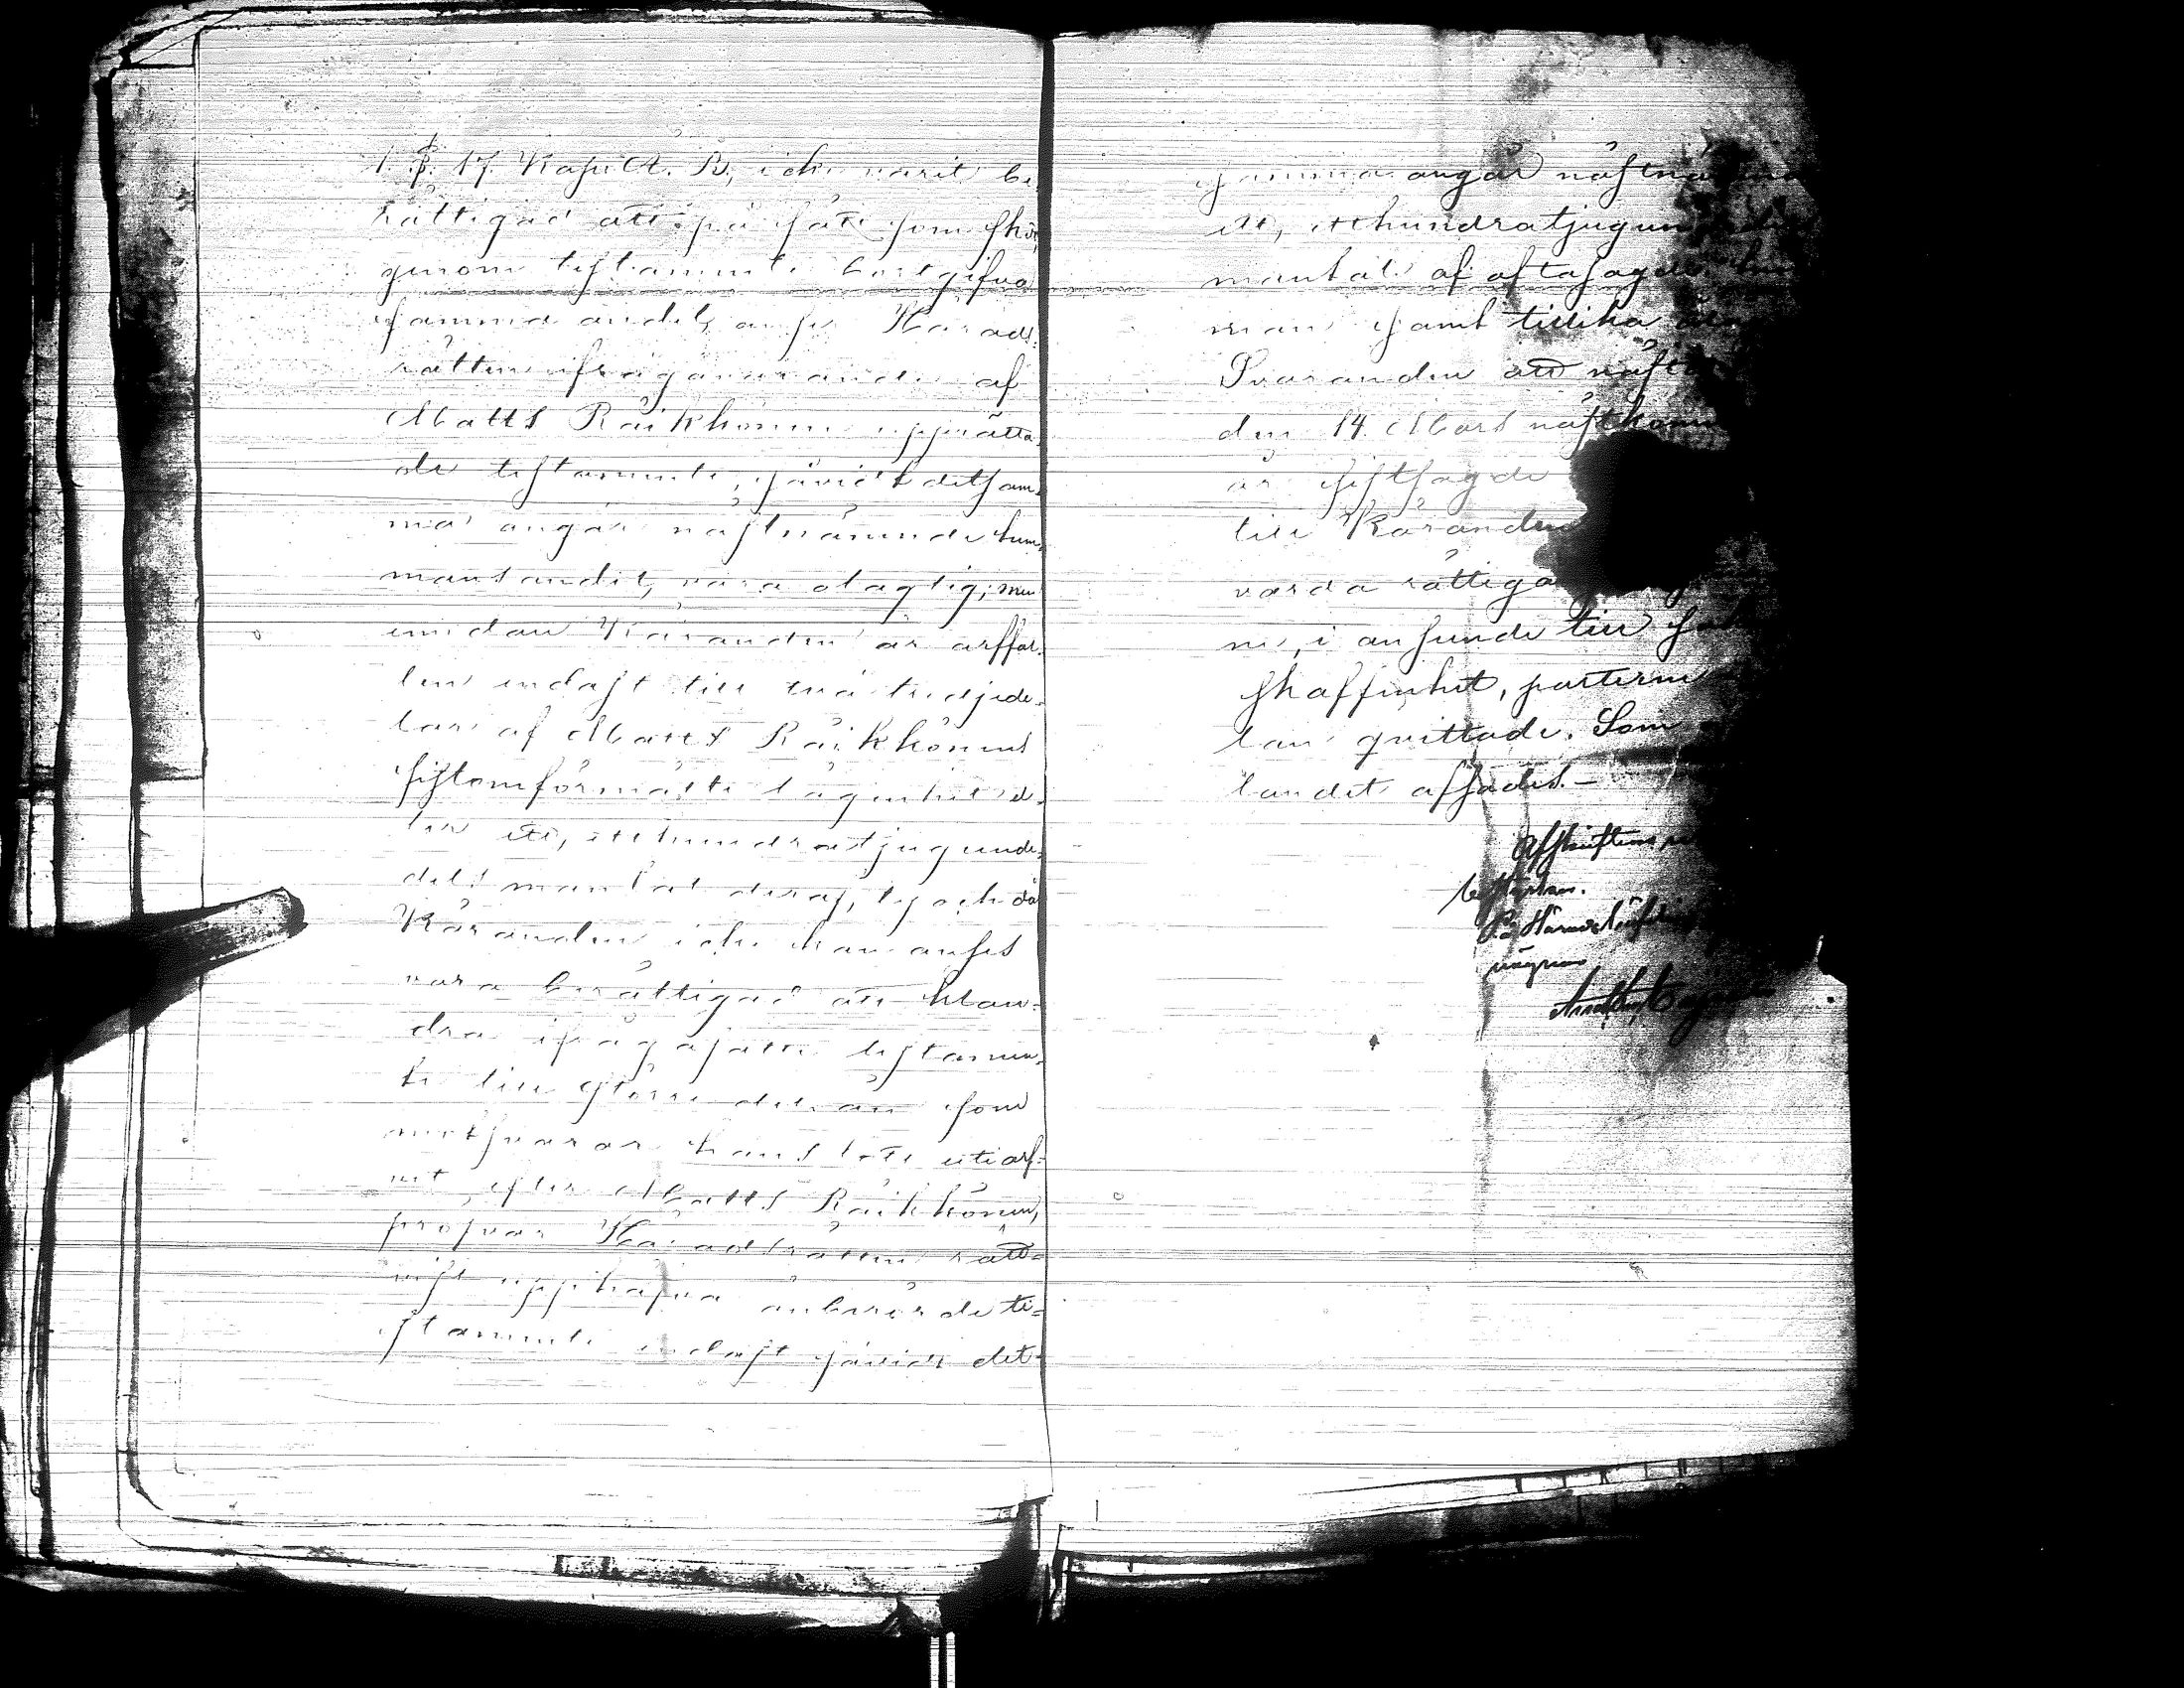 1. §. 17 Kap. Ä. B, icke varit be-
rättigad att på sätt som skett
genom testamente bortgifva
samma andel, anser Härads-
rätten ifrågavarande af
Matts Räikkönen upprätta-
de testamente, såvidt detsam-
ma angår nästnämnde hem-
mansandel, vara olaglig; men
emedan Käranden är arffal-
len endast till två tredjede-
lar af Matts Räikkönens
sistomförmälte lägenhet el-
ler ett, etthundratjugunde-
dels mantal deraf, ty och då
Käranden icke kan anses
vara berättigad att klan-
dra ifrågasatte testamen-
te till större del än som
motsvarar hans lott uti arf-
vet efter Matts Räikkönen,
pröfvar Häradsrätten rätt-
vist upphäfva anberörde te-
stamente endast såvidt det-
samma angår nästnä
ett, etthundratjugun
mantal af oftasagde hem
man samt tillika
Svaranden att näst
den 14 Mars nästkomm
år sistsagde
till Käranden
varda rättega
ne, i anseende till sak
skaffenhet, parterne
lan qvittade. Som
landet afsades.—
Afskriftens
På Häradshöfdinge
vägnar